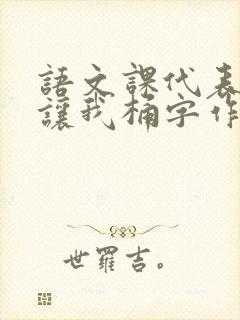 語文課代表
讓我桶字作
世羅吉。